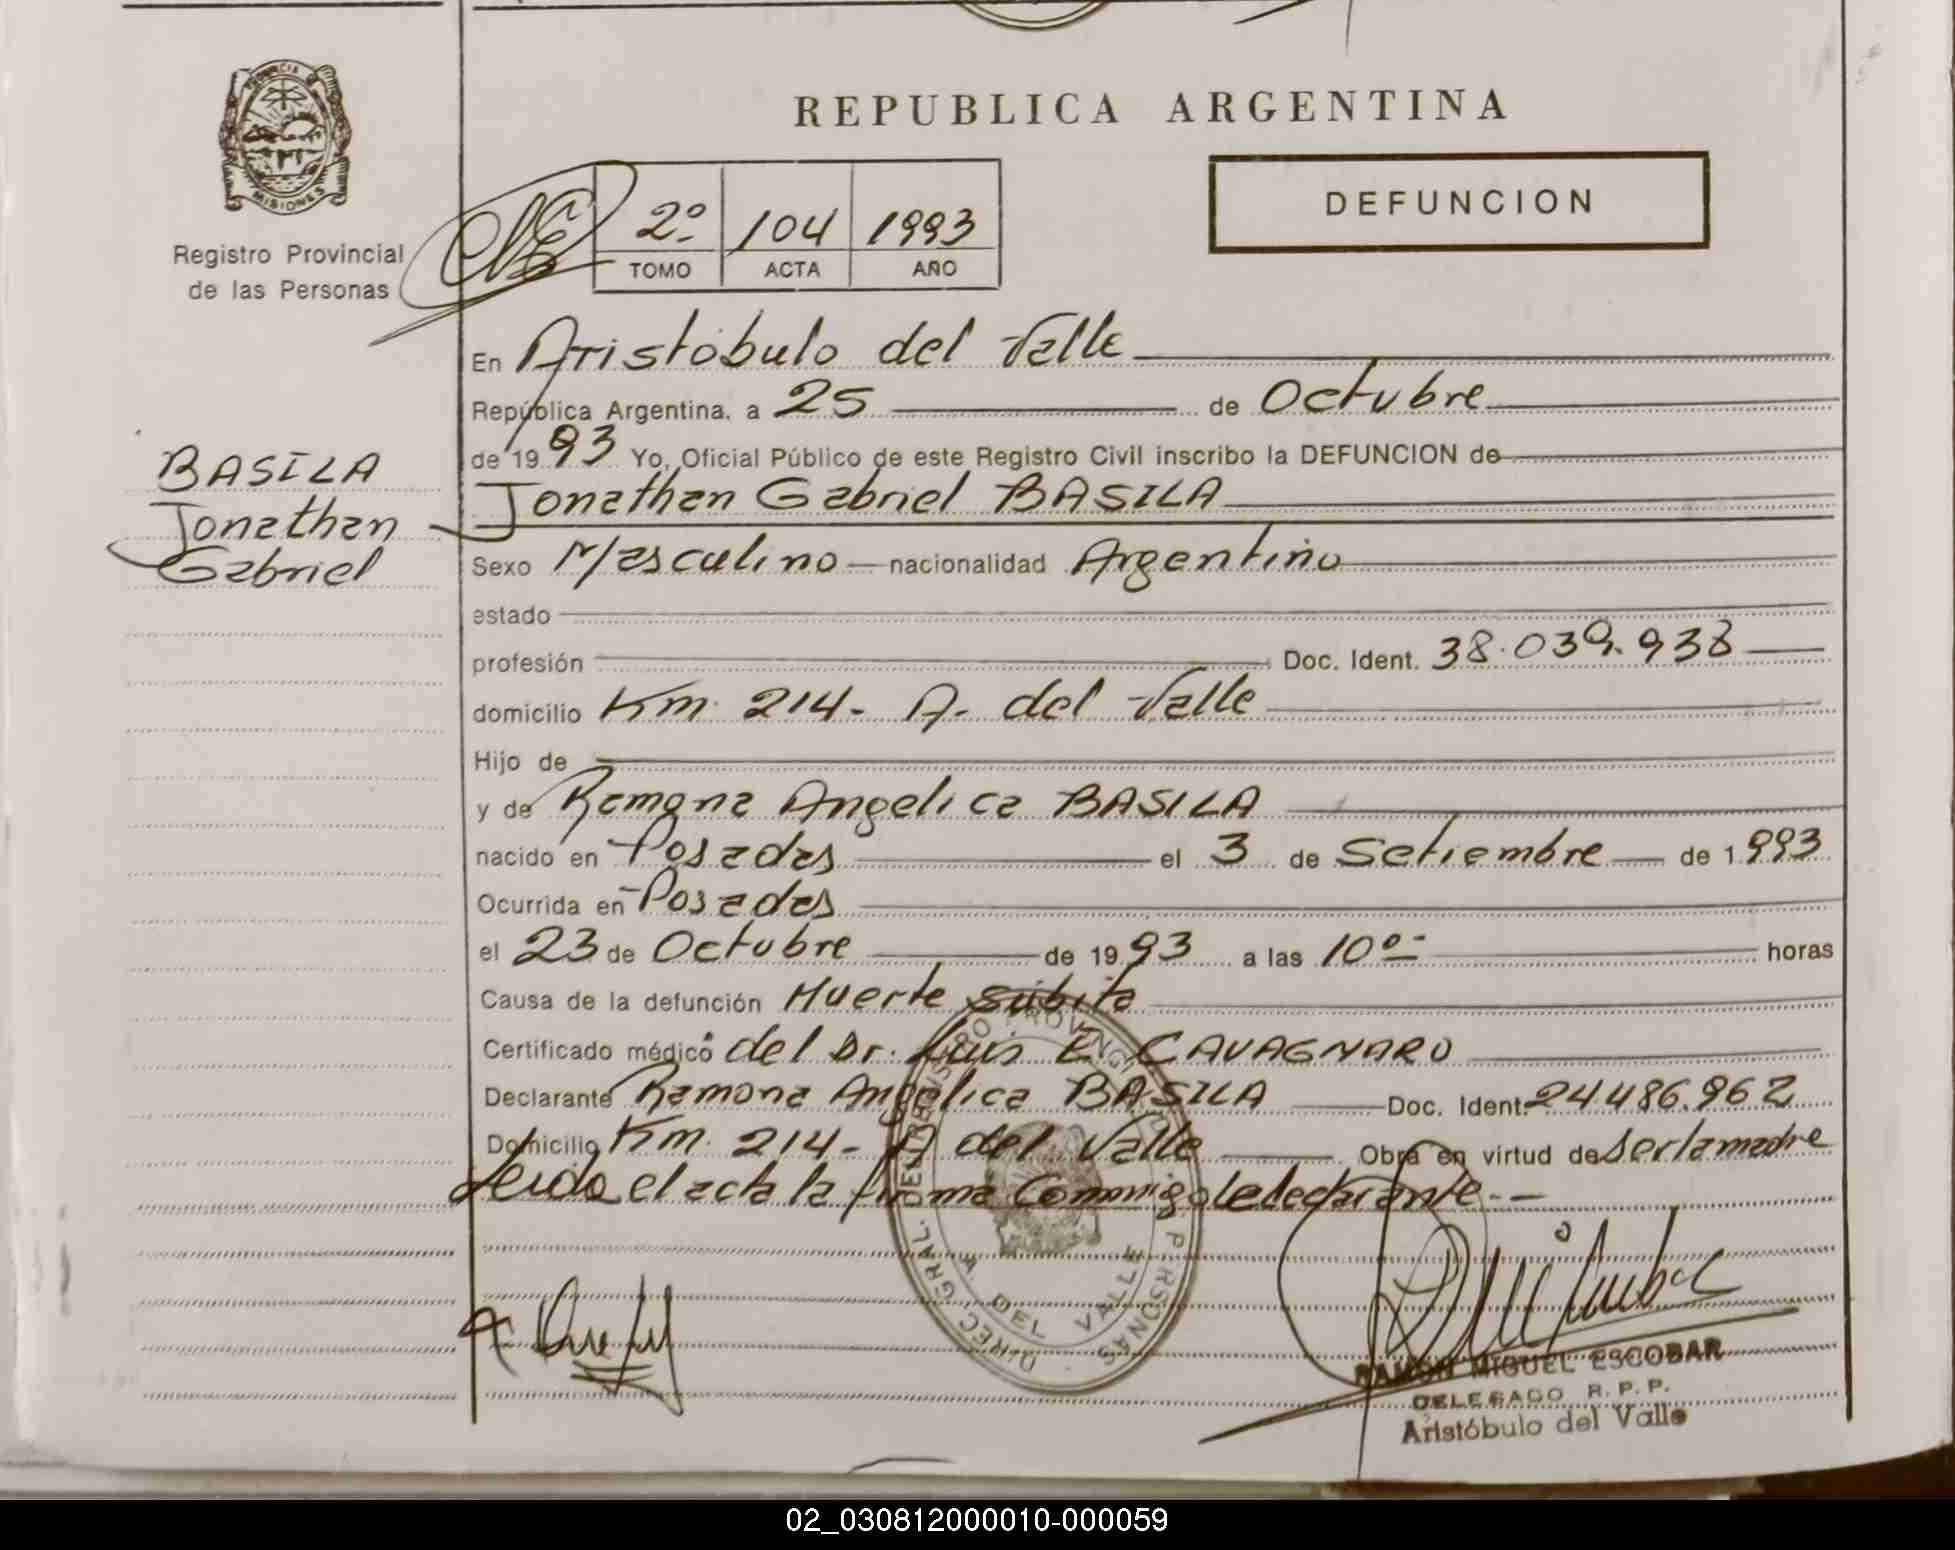 REPUBLICA ARGENTINA
PROVINCIA
MISIONES
Registro Provincial
de las Personas
2º 104 1993
TOMO ACTA AÑO
DEFUNCION
BASILA
Jonathan
Gabriel
En Aristóbulo del Valle
República Argentina, a 25 de Octubre
de 1993 Yo, Oficial Público de este Registro Civil inscribo la DEFUNCION de
Jonathan Gabriel BASILA
Sexo Masculino nacionalidad Argentino
estado
profesión Doc. Ident. 38.039.938
domicilio Km. 214- A. del Valle
Hijo de
y de Ramona Angelica BASILA
nacido en Posadas el 3 de Setiembre de 1993
Ocurrida en Posadas
el 23 de Octubre de 1993 a las 10º- horas
Causa de la defunción Muerte súbita
Certificado médico del Dr. Luis E. CAVAGNARO
Declarante Ramona Angelica BASILA Doc. Ident. 24486.962
Domicilio Km. 214- A del Valle Obra en virtud de ser la madre
Leida el acta la firma Conmigo la declarante.--
DIREC. GRAL. DEL REGISTRO PROVINCIAL PERSONAS
A. DEL VALLE
RAMON MIGUEL ESCOBAR
DELEGADO R. P. P.
Aristóbulo del Valle
02_030812000010-000059